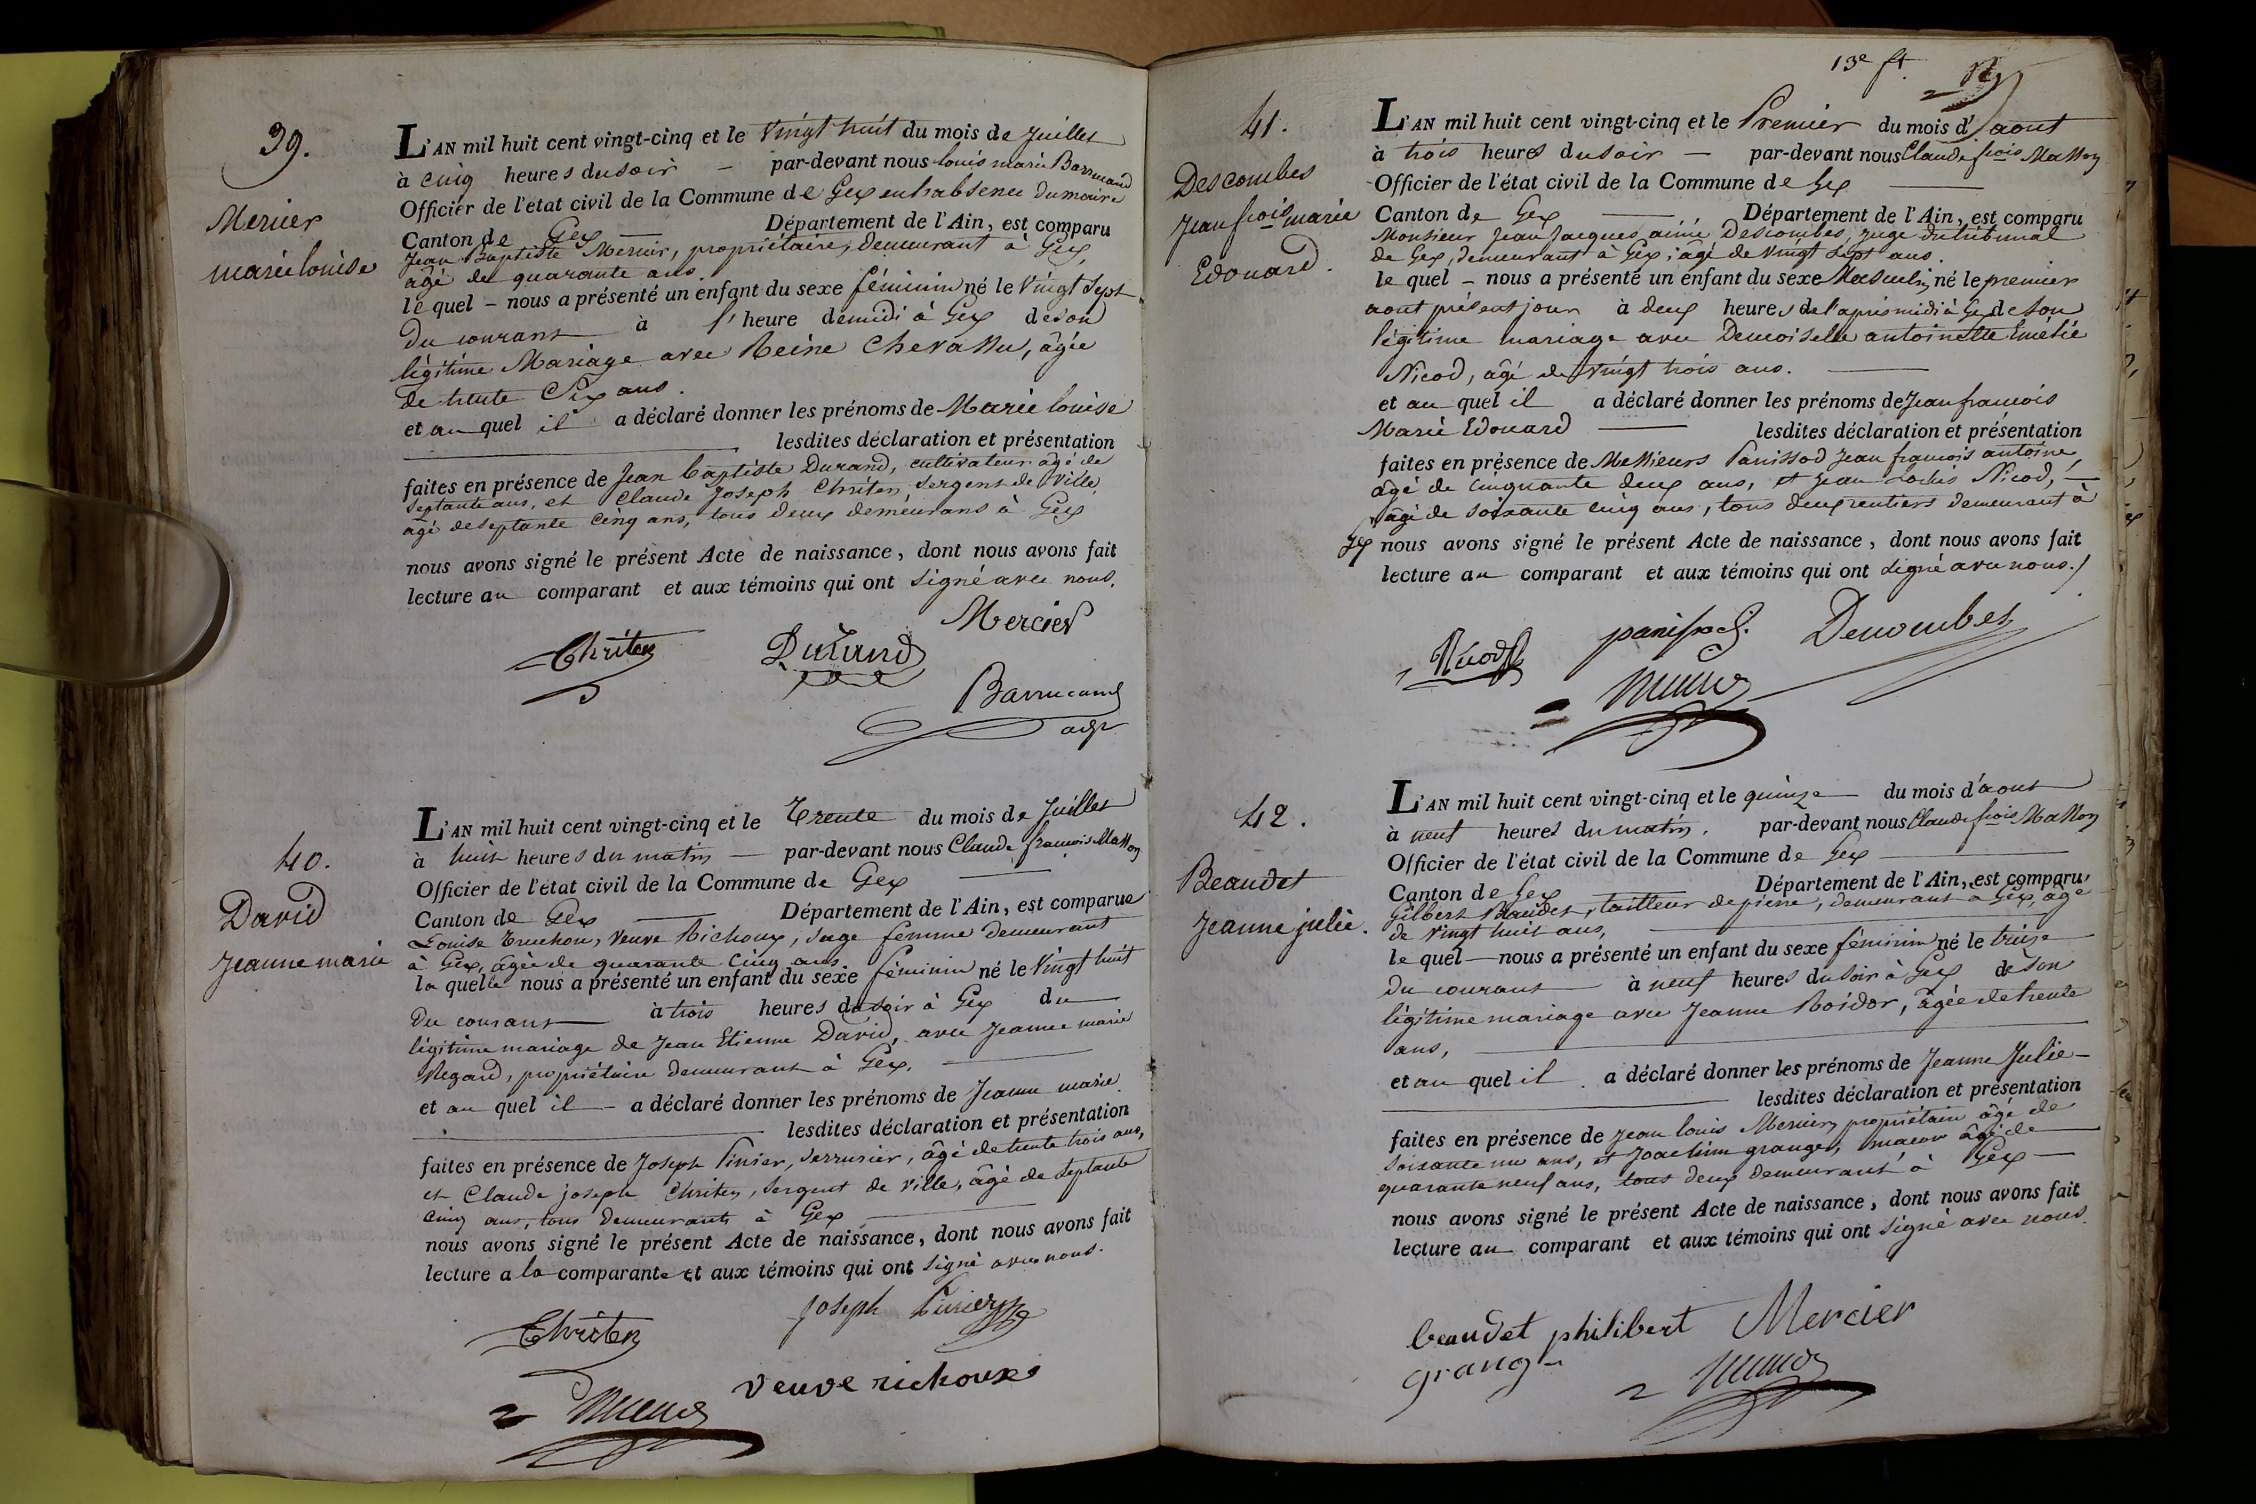 39.
Mercier
marie louise
L'AN mil huit cent vingt-cinq et le vingt huit du mois de Juillet
à cinq heures du soir — par-devant nous louis marie Barrucand
Officier de l'état civil de la Commune de Gex en l'absence du maire
Canton de Gex — Département de l'Ain, est comparu
Jean Baptiste Mercier, propriétaire, demeurant à Gex,
âgé de quarante ans.
le quel — nous a présenté un enfant du sexe féminin né le vingt sept
du courant à l' heure demidi à Gex de son
légitime Mariage avec Reine Chevassu, âgée
de trente Six ans.
et au quel il a déclaré donner les prénoms de Marie louise
lesdites déclaration et présentation
faites en présence de Jean baptiste Durand, cultivateur âgé de
septante ans, et Claude Joseph Chriten, Sergent de Ville,
âgé de septante cinq ans, tous deux demeurans à Gex
nous avons signé le présent Acte de naissance, dont nous avons fait
lecture au comparant et aux témoins qui ont signé avec nous.
Mercier
Chriten Durand
Barrucand
adjt
40.
David
Jeanne marie
L'AN mil huit cent vingt-cinq et le Trente du mois de Juillet
à huit heures du matin — par-devant nous Claude françois Masson
Officier de l'état civil de la Commune de Gex
Canton de Gex — Département de l'Ain, est comparue
Louise Truchon, veuve Richoux, sage femme demeurant
à Gex, âgée de quarante cinq ans.
la quelle nous a présenté un enfant du sexe féminin né le vingt huit
du courant à trois heures du soir à Gex du
légitime mariage de Jean Etienne David, avec Jeanne marie
Regard, propriétaire demeurant à Gex.
et au quel il — a déclaré donner les prénoms de Jeanne marie
lesdites déclaration et présentation
faites en présence de Joseph Pinier, serrurier, âgé de trente trois ans,
et Claude joseph Chriten, sergent de ville, âgé de septante
cinq ans, tous demeurants à Gex
nous avons signé le présent Acte de naissance, dont nous avons fait
lecture a la comparante et aux témoins qui ont signé avec nous.
Chriten Joseph Pinier
veuve richoux
13e ft.
41.
Descombes
Jean fcois marie
Edouard.
L'AN mil huit cent vingt-cinq et le Premier du mois d'aout
à trois heures du soir — par-devant nous Claude fcois Masson
Officier de l'état civil de la Commune de Gex
Canton de Gex — Département de l'Ain, est comparu
Monsieur Jean Jacques aimé Descombes, juge du tribunal
de Gex, demeurant à Gex; âgé de vingt sept ans.
le quel — nous a présenté un enfant du sexe Masculin né le premier
aout présent jour à deux heures de l'après midi à Gex de son
légitime mariage avec Demoiselle antoinette Emélie
Nicod, âgé de vingt trois ans.
et au quel il a déclaré donner les prénoms de Jean françois
Marie Edouard — lesdites déclaration et présentation
faites en présence de Messieurs Panissod Jean françois antoine,
âgé de cinquante deux ans, et Jean Louis Nicod, —
âgé de soixante cinq ans, tous deux rentiers demeurant à
Gex nous avons signé le présent Acte de naissance, dont nous avons fait
lecture au comparant et aux témoins qui ont signé avec nous./
Nicod panissod Descombes
42.
Beaudet
Jeanne julie.
L'AN mil huit cent vingt-cinq et le quinze du mois d'aout
à neuf heures du matin. par-devant nous Claude fcois Masson
Officier de l'état civil de la Commune de Gex
Canton de Gex — Département de l'Ain, est comparu
Gilbert Beaudet, tailleur de pierre, demeurant à Gex, âgé
de vingt huit ans,
le quel — nous a présenté un enfant du sexe féminin né le treize
du courant à neuf heures du soir à Gex de son
légitime mariage avec Jeanne Roidor, âgée de trente
ans,
et au quel il a déclaré donner les prénoms de Jeanne Julie —
lesdites déclaration et présentation
faites en présence de Jean louis Mercier, propriétaire âgé de
soixante un ans, et Joachim granger, macon âgé de
quarante neuf ans, tous deux demeurant à Gex —
nous avons signé le présent Acte de naissance, dont nous avons fait
lecture au comparant et aux témoins qui ont signé avec nous.
beaudet philibert Mercier